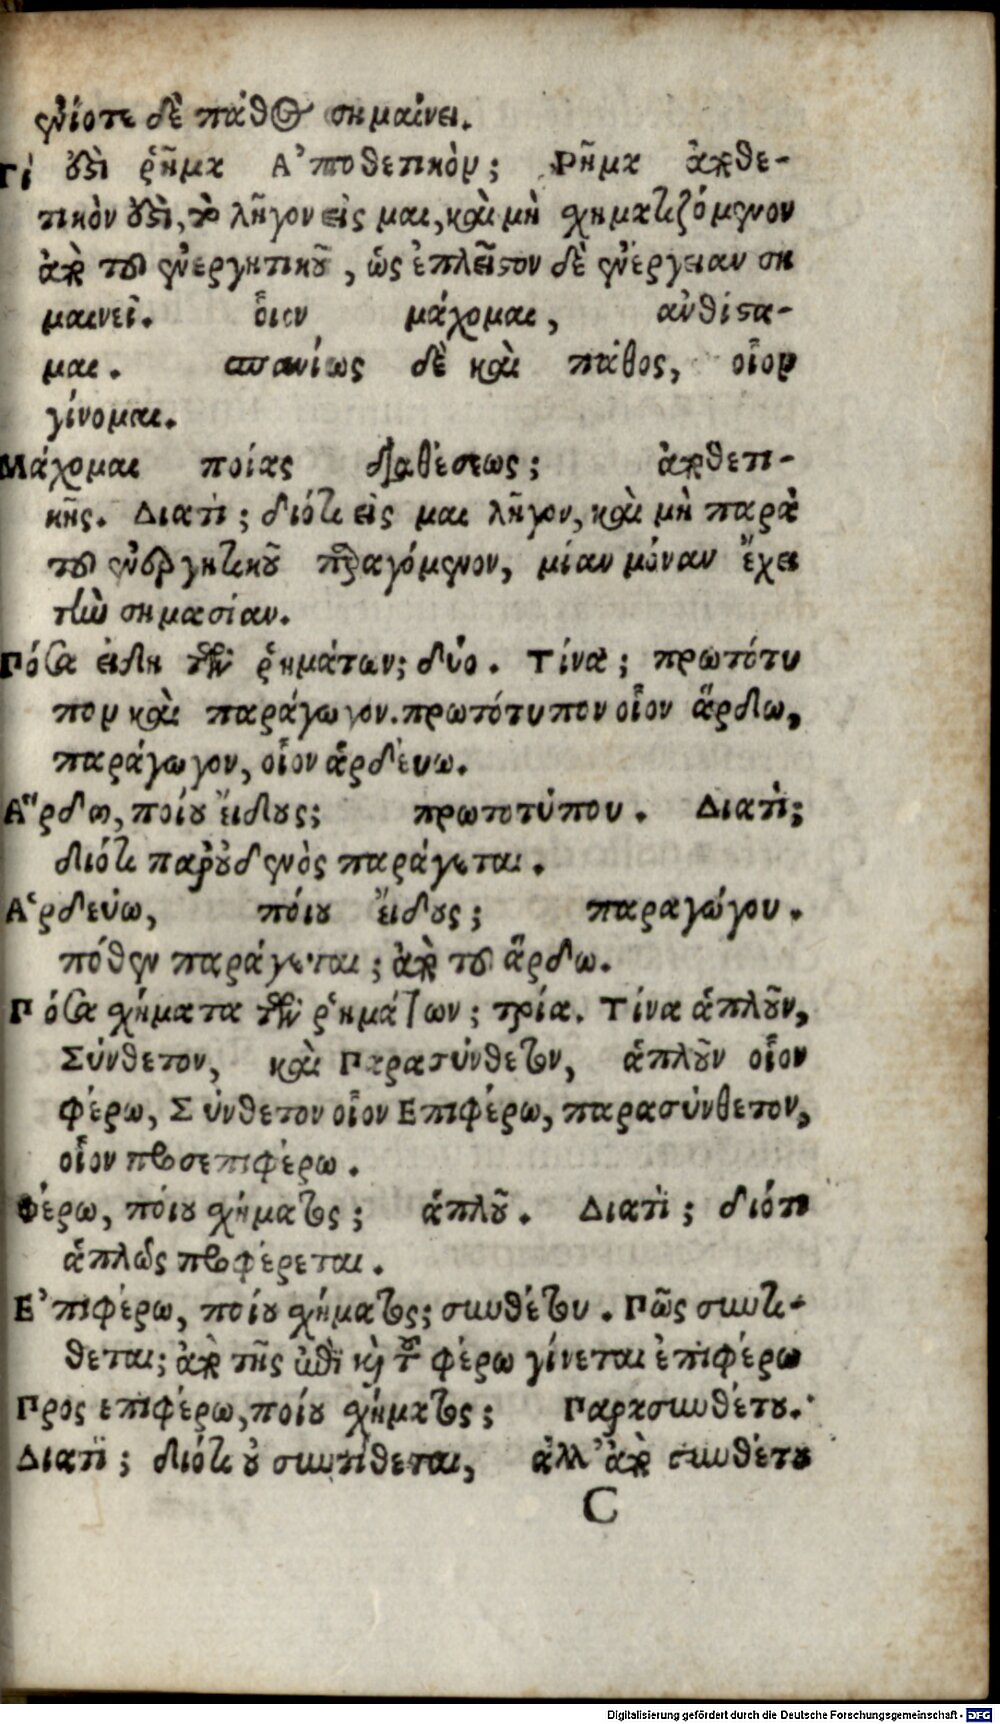 ἐνίοτε δὲ πάθος σημαίνει.
Τί ὅςι ῥῆμα Ἀποθετικὸν; Ρῆμα ἀποθε-
τικὸν ὅςὶ, τὸ λῆγον εἰς μαι, καὶ μὴ χηματιζόμενον
ἀπὸ τοῦ ἐνεργητικοῦ, ὡς ἐπλεῖστον δὲ ἐνέργειαν ση
μαινεῖ. οἷον μάχομαι, ἀνθίστα-
μαι. σπανίως δὲ καὶ πάθος, οἷον
γίνομαι.
Μάχομαι ποίας διαθέσεως; ἀποθετι-
κῆς. Διατὶ; διότι εἰς μαι λῆγον, καὶ μὴ παρὰ
τοῦ ἐνεργητικοῦ παραγόμενον, μίαν μόναν ἔχει
τὼ σημασίαν.
Πόσα εἰδη τῶν ῥημάτων; δύο. Τίνα; πρωτότυ
πον καὶ παράγωγον. πρωτότυπον οἷον ἄρδω,
παράγωγον, οἷον ἀρδέυω.
Ἄρδω, ποίου ἔιδους; πρωτοτύπου. Διατὶ;
διότι παρ' οὐδενὸς παράγεται.
Ἀρδεύω, πόιου ἔιδους; παραγώγου.
πόθεν παράγεται; ἀπὸ τοῦ ἄρδω.
Πόσα χήματα τῶν ῥημάτων; τρία. Τίνα ἁπλοῦν,
Σύνθετον, καὶ Παρασύνθετον, ἁπλοῦν οἷον
φέρω, Σύνθετον οἷον Επιφέρω, παρασύνθετον,
οἷον προσεπιφέρω.
Φέρω, πόιου χήματος; ἁπλοῦ. Διατὶ; διότι
ἁπλῶς προφέρεται.
Ἐπιφέρω, ποίου χήματος; συνθέτου. Πῶς συντί-
θεται; ἀπὸ τῆς ἐπὶ καὶ τοῦ φέρω γίνεται ἐπιφέρω
Προς επιφέρω, ποίου χήματος; Παρασυνθέτου.
Διατὶ; διότι οὐ συντίθεται, ἀλλ' ἀπὸ συνθέτου
C
Digitalisierung gefördert durch die Deutsche Forschungsgemeinschaft - DFG